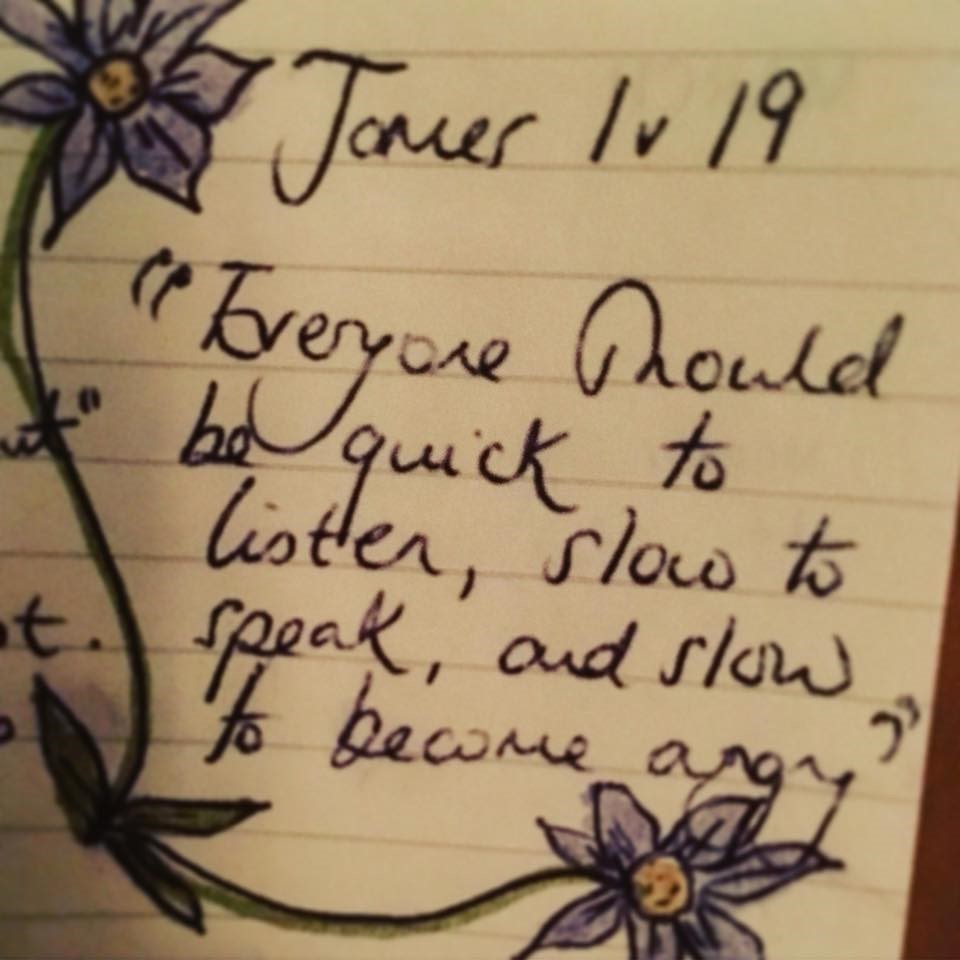 James 1 v 19
"Everyone Should
be quick to
listen, slow to
speak, and slow
to become angry"